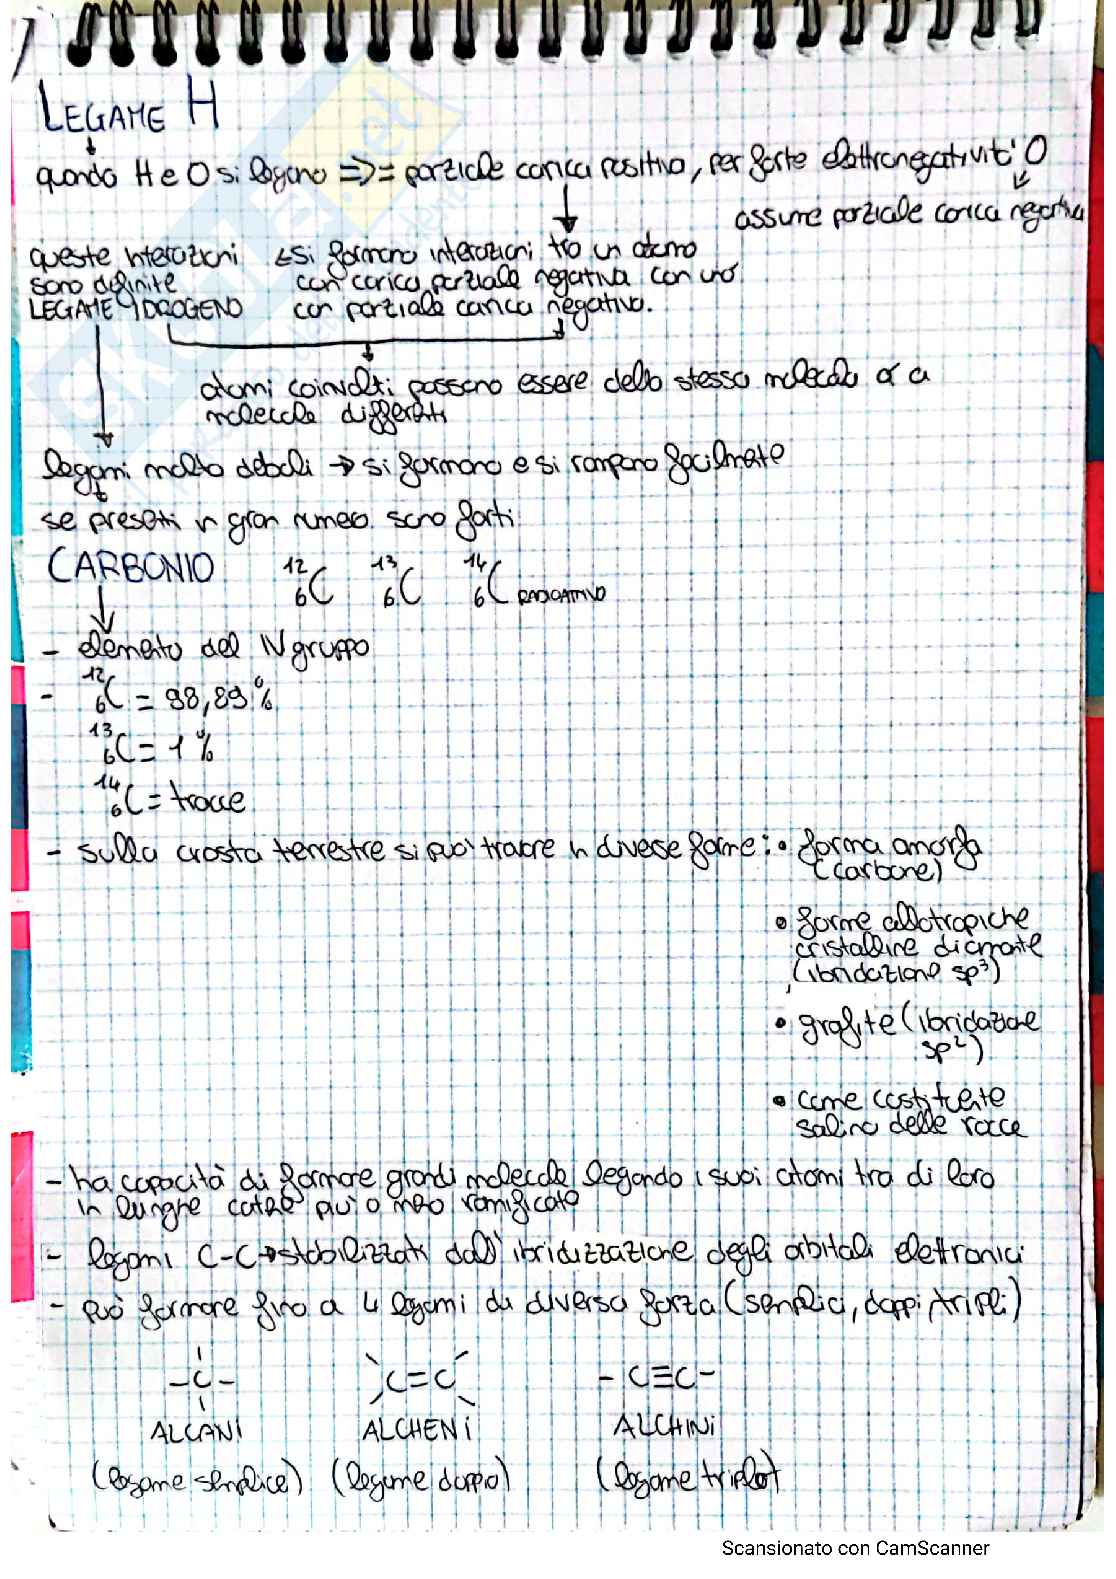 LEGAME H
quando H e O si legano => = parziale carica positiva, per forte elettronegatività O
assume parziale carica negativa
queste interazioni ← si formano interazioni tra un atomo
sono definite con carica parziale negativa con uno
LEGAME IDROGENO con parziale carica negativa.
atomi coinvolti possono essere della stessa molecola o a
molecole differenti
legami molto deboli → si formano e si rompono facilmente
se presenti in gran numero sono forti
CARBONIO ¹²₆C ¹³₆C ¹⁴₆C RADIOATTIVO
- elemento del IV gruppo
- ¹²₆C = 98,89%
¹³₆C = 1%
¹⁴₆C = tracce
- sulla crosta terrestre si può trovare in diverse forme: • forma amorfa
(carbone)
• forme allotropiche
cristalline diamante
(ibridazione sp³)
• grafite (ibridazione
sp²)
• come costituente
salino delle rocce
- ha capacità di formare grandi molecole legando i suoi atomi tra di loro
in lunghe catene più o meno ramificate
- legami C-C → stabilizzati dall'ibridizzazione degli orbitali elettronici
- può formare fino a 4 legami di diversa forza (semplici, doppi, tripli)
-C- C=C -C≡C-
ALCANI ALCHENI ALCHINI
(legame semplice) (legame doppio) (legame triplo)
Scansionato con CamScanner